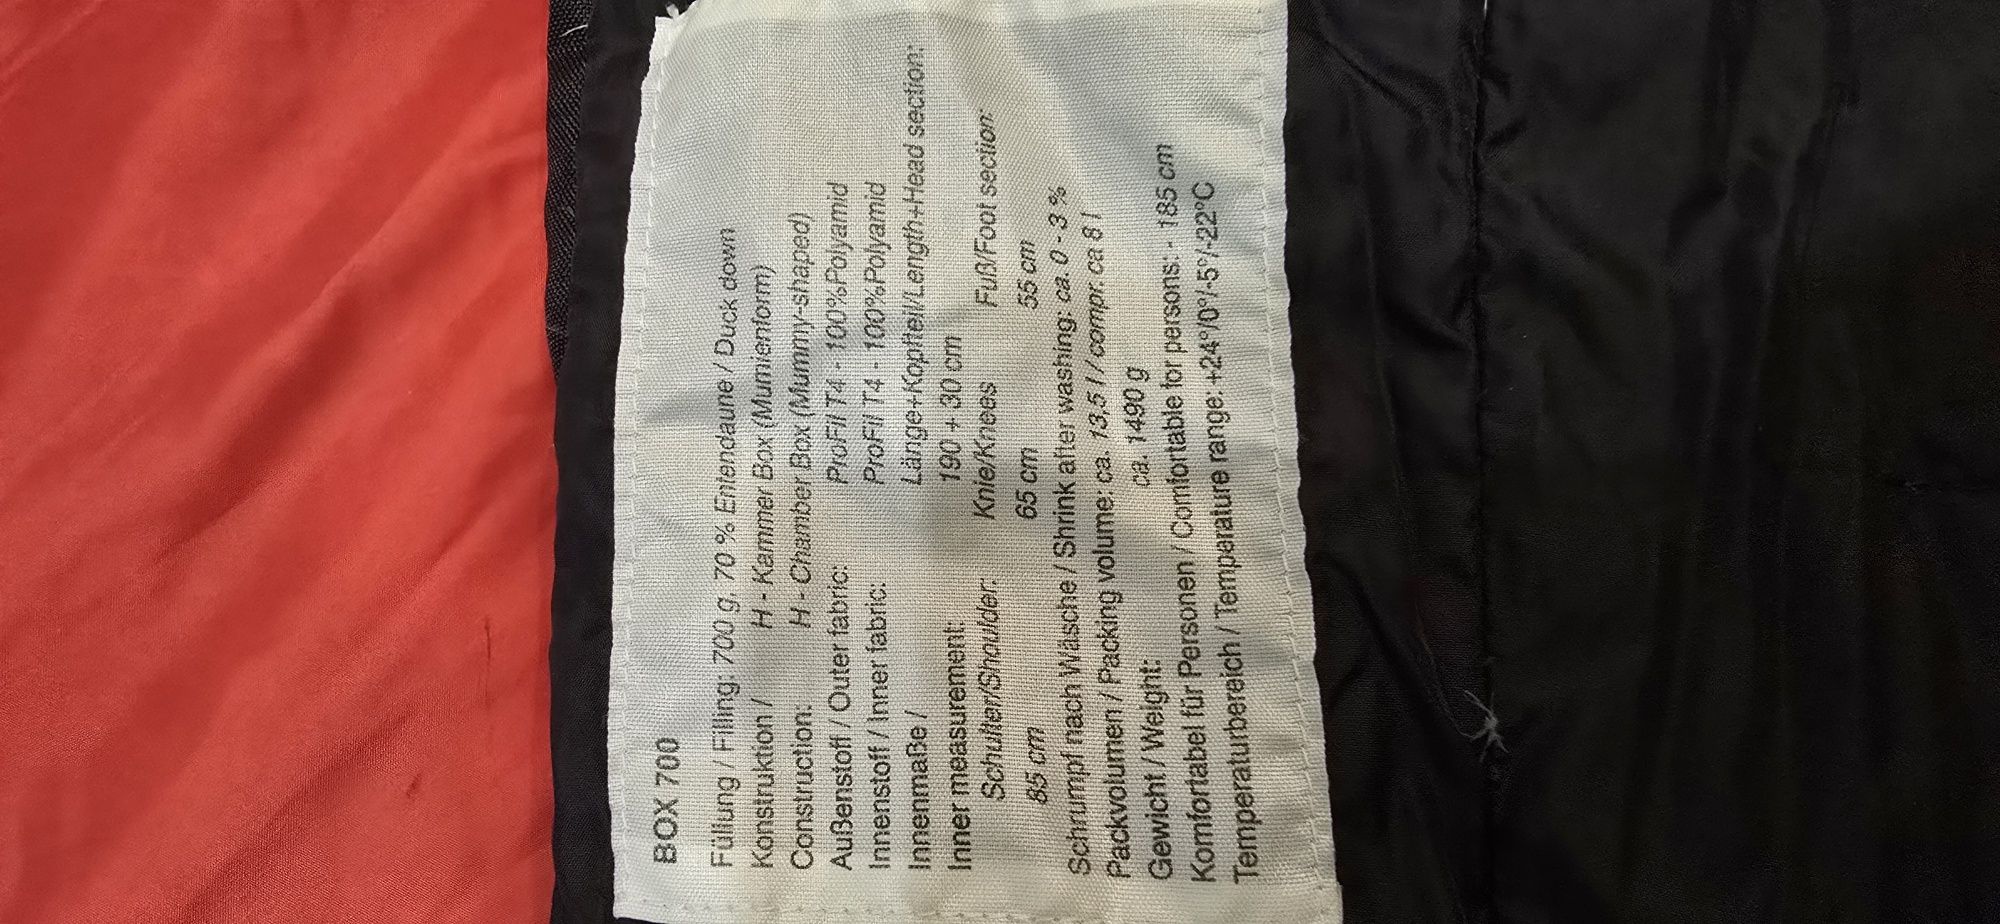 BOX 700
Füllung / Filling: 700 g, 70 % Entendaune / Duck down
Konstruktion / H - Kammer Box (Mumienform)
Construction: H - Chamber Box (Mummy-shaped)
Außenstoff / Outer fabric: ProFil T4 - 100%Polyamid
Innenstoff / Inner fabric: ProFil T4 - 100%Polyamid
Innenmaße / Länge+Kopfteil/Length+Head section:
Inner measurement: 190 + 30 cm
Schulter/Shoulder: Knie/Knees Fuß/Foot section:
85 cm 65 cm 55 cm
Schrumpf nach Wäsche / Shrink after washing: ca. 0 - 3 %
Packvolumen / Packing volume: ca. 13,5 l / compr. ca 8 l
Gewicht / Weight: ca. 1490 g
Komfortabel für Personen / Comfortable for persons: - 185 cm
Temperaturbereich / Temperature range: +24°/0°/-5°/-22°C